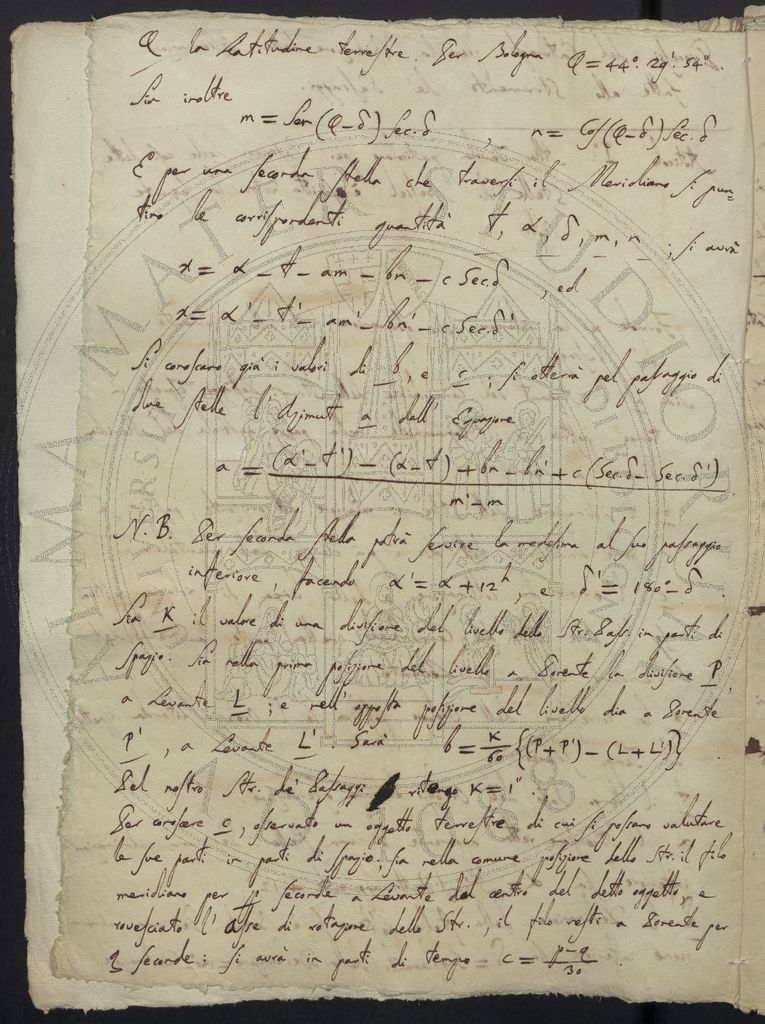 φ la Latitudine terrestre. Per Bologna φ = 44°. 29'. 54".
Sia inoltre
m = Sen (φ-δ) Sec. δ , n = Cos (φ-δ) Sec. δ
E per una seconda stella che traversi il Meridiano si pun=
tino le corrispondenti quantità t, α, δ, m, n ; si avrà
x = α - t - am - bn - c Sec. δ , ed
x = α' - t' - am' - bn' - c Sec. δ'
Si conoscano già i valori di b, e c ; si otterrà pel passaggio di
due stelle l'Azimut a dall'Equazione
a = (α'-t') - (α-t) + bn - bn' + c (Sec. δ - Sec. δ')
m' - m
N. B. Per seconda stella potrà servire la medesima al suo passaggio
inferiore, facendo α' = α + 12h, e δ' = 180° - δ.
Sia K il valore di una divisione del livello dello Str. Pass. in parti di
spazio. Sia nella prima posizione del livello a Ponente la divisione P,
a Levante L ; e nell'opposta posizione del livello dia a Ponente
P' , a Levante L'. Sarà b = K/60 {(P+P') - (L+L')}.
Pel nostro Str. de' Passaggi ritengo K = 1".
Per conoscere c, osservato un oggetto terrestre, di cui si possano valutare
le sue parti in parti di spazio, sia nella comune posizione dello Str. il filo
meridiano per p seconde a Levante dal centro del detto oggetto, e
rovesciato l'asse di rotazione dello Str., il filo resti a Ponente per
q seconde: si avrà in parti di tempo c = p-q/30.
ALMA MATER STUDIORUM
A.D. 1088